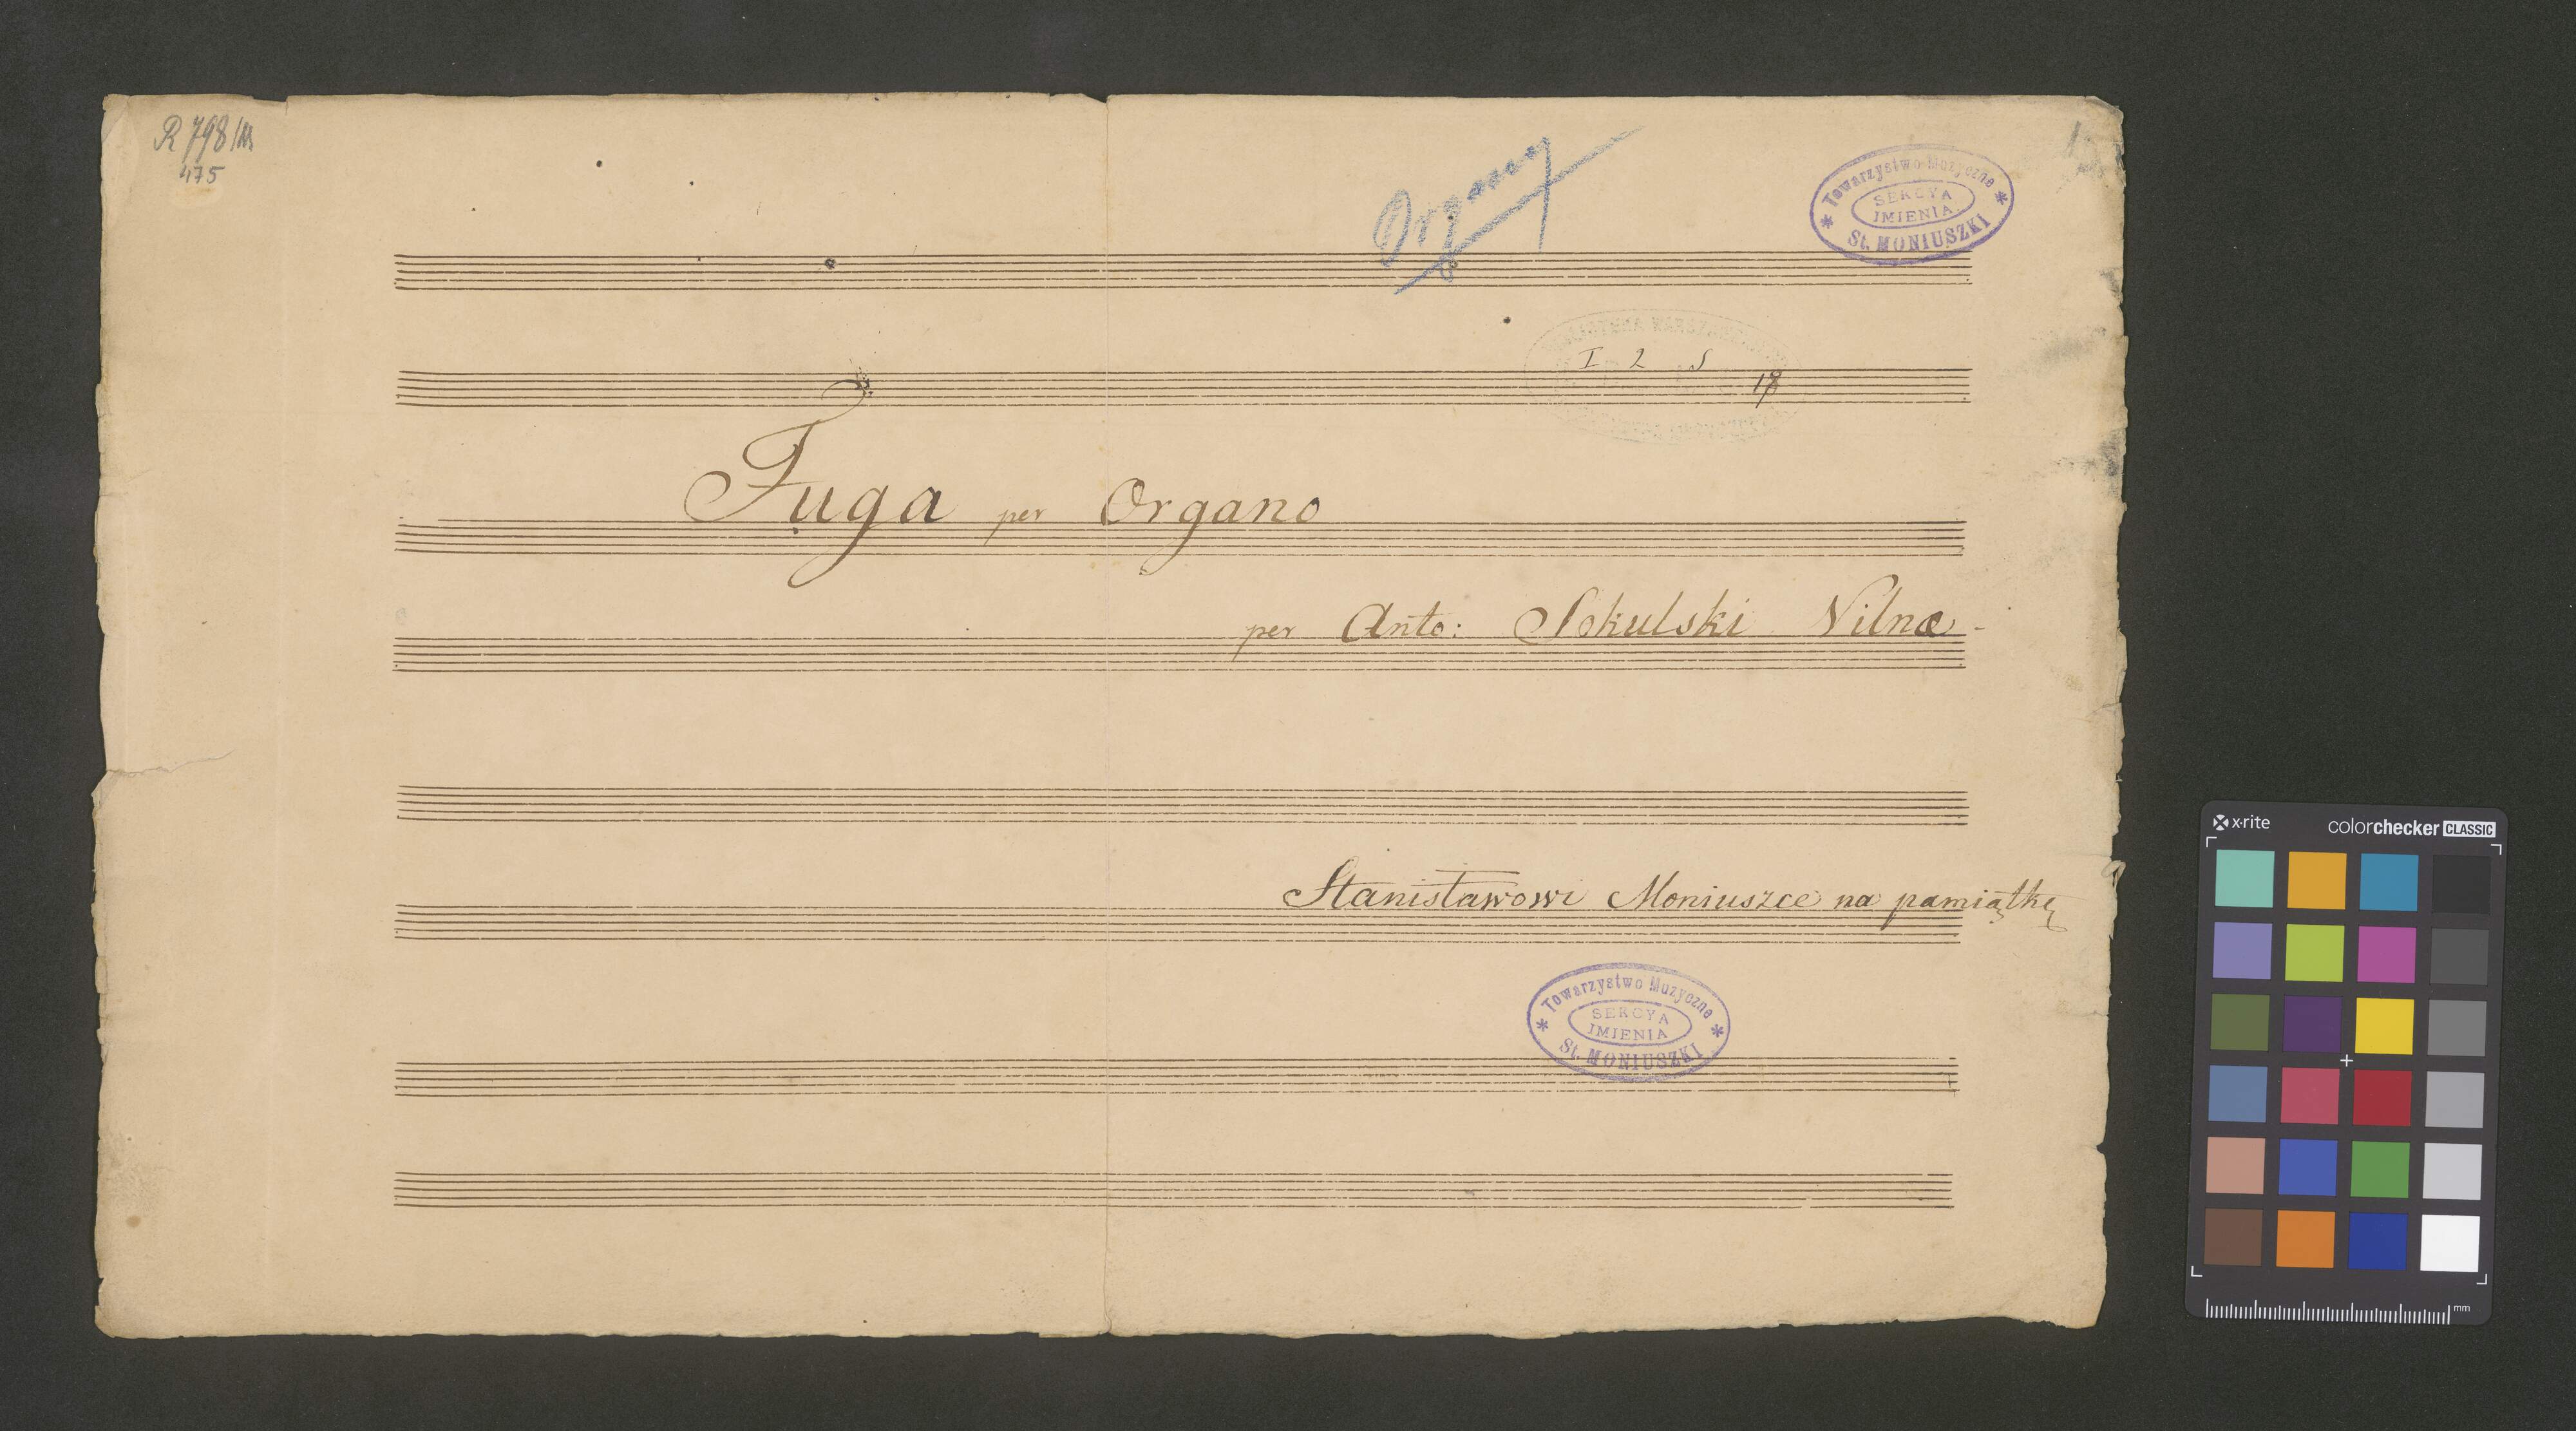 R 798/M
475
Organy
Towarzystwo Muzyczne
SEKCYA
IMIENIA
St. MONIUSZKI
I 2 S
18
Fuga per Organo
per Anto: Sokulski Vilnæ
Stanisławowi Moniuszce na pamiątkę
Towarzystwo Muzyczne
SEKCYA
IMIENIA
St. MONIUSZKI
x·rite colorchecker CLASSIC
mm